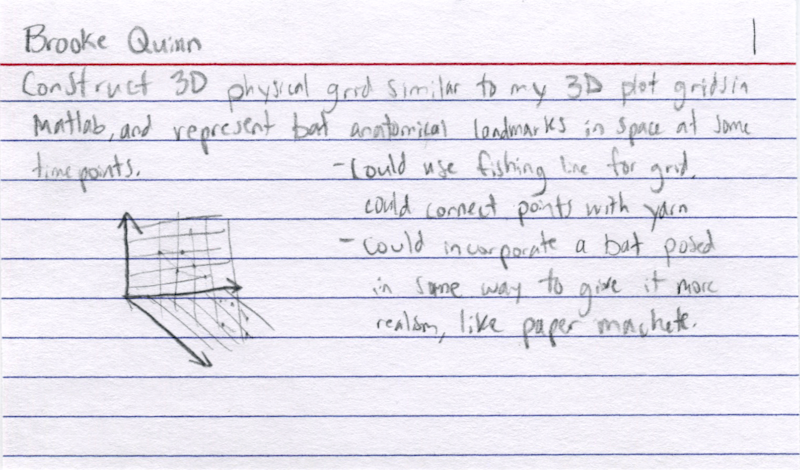 Brooke Quinn
1
Construct 3D physical grid similar to my 3D plot grids in
Matlab, and represent bat anatomical landmarks in space at some
timepoints.
- Could use fishing line for grid,
could connect points with yarn
- Could incorporate a bat posed
in some way to give it more
realism, like paper machete.